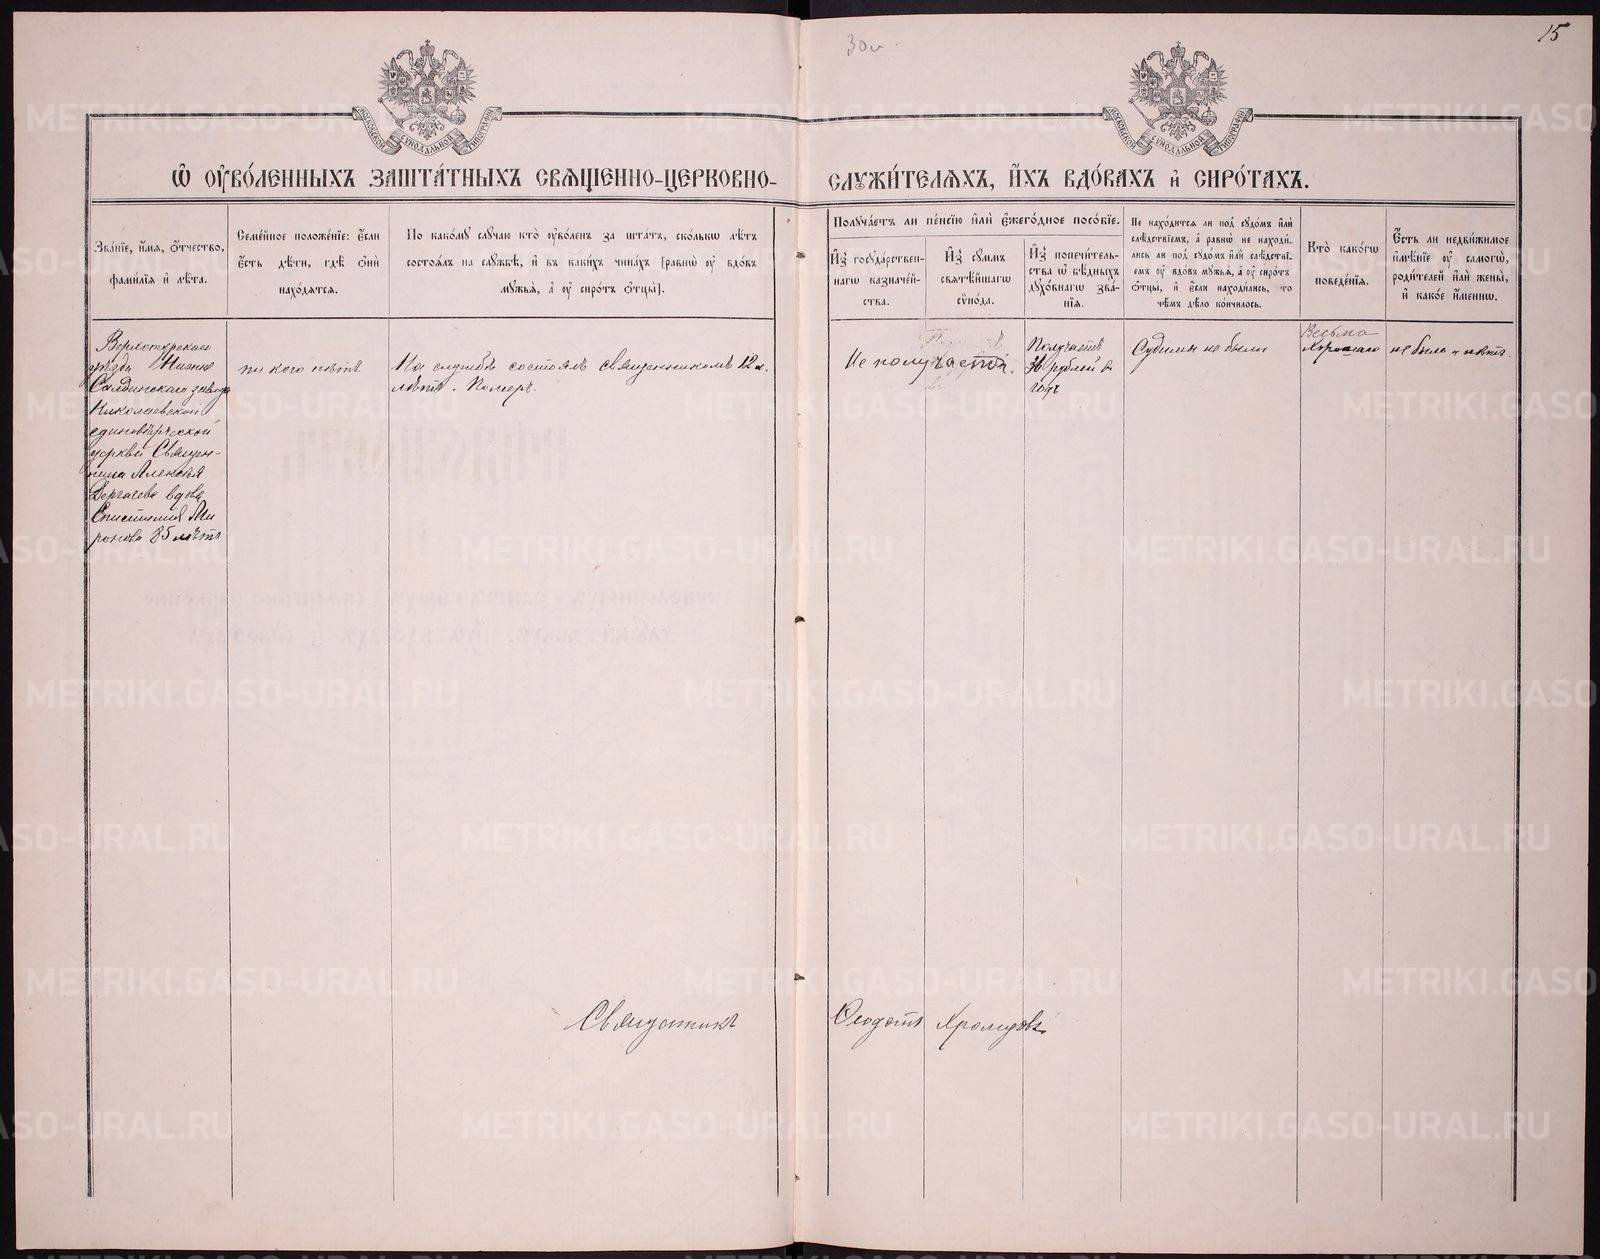 30
15
МОСКОВСКОЙ СУНОДАЛЬНОЙ ТИПОГРАФІИ
МОСКОВСКОЙ СУНОДАЛЬНОЙ ТИПОГРАФІИ
Ѽ оу҆во́ленныхъ заштáтныхъ свѧще́нно-церковно-служи́телѧхъ, и҆́хъ вдо́вахъ и҆ сиро́тахъ.
Зва́нїе, и҆́мѧ, ѻ҆́тчество,
фами́лїѧ и҆ лѣ́та.
Семе́йное положе́нїе: є҆́сли
є҆́сть дѣ́ти, гдѣ̀ ѻ҆нѝ
нахо́дѧтсѧ.
По како́му слу́чаю кто̀ оу҆во́ленъ за шта́тъ, ско́лькѡ лѣ́тъ
состоѧ́лъ на слу́жбѣ, и҆ въ каки́хъ чина́хъ [равнѡ̀ оу҆ вдо́въ
мужьѧ̀, а҆ оу҆ сиро́тъ ѻ҆тцы̀].
Получа́етъ ли пе́нсїю и҆лѝ є҆жего́дное посо́бїе.
И҆з̾ госуда́рствен-
нагѡ казначе́й-
ства.
И҆з̾ су́ммъ
свѧтѣ́йшагѡ
сѷно́да.
И҆з̾ попечи́тель-
ства ѡ҆ бѣ́дныхъ
духо́внагѡ зва́-
нїѧ.
Не нахо́дитсѧ ли под̾ судо́мъ и҆лѝ
слѣ́дствїемъ, а҆ равнѡ̀ не находи́-
лись ли под̾ судо́мъ и҆лѝ слѣ́дствї-
емъ оу҆ вдо́въ мужьѧ̀, а҆ оу҆ сиро́тъ
ѻ҆тцы̀, и҆ є҆́сли находи́лись, то
чѣ́мъ дѣ́ло ко́нчилось.
Кто̀ како́гѡ
поведе́нїѧ.
Є҆́сть ли недви́жимое
и҆мѣ́нїе оу҆ самогѡ̀,
роди́телей и҆лѝ жены̀,
и҆ како́е и҆́меннѡ.
Верхотурскаго
уѣзда Нижне
Салдинскаго завода
Николаевской
единовѣрческой
церкви Священ-
ника Алексѣя
Дергачева вдова
Епистимія Ми
ронова 85 лѣтъ
ни кого нѣтъ
На службѣ состоялъ священникомъ 12
лѣтъ. Померъ.
Не получаетъ.
Получаетъ
36 рублей въ
годъ
Судимы не были
Весьма
Хорошаго
не было и нѣтъ.
Священникъ Ѳеодотъ Хромцовъ